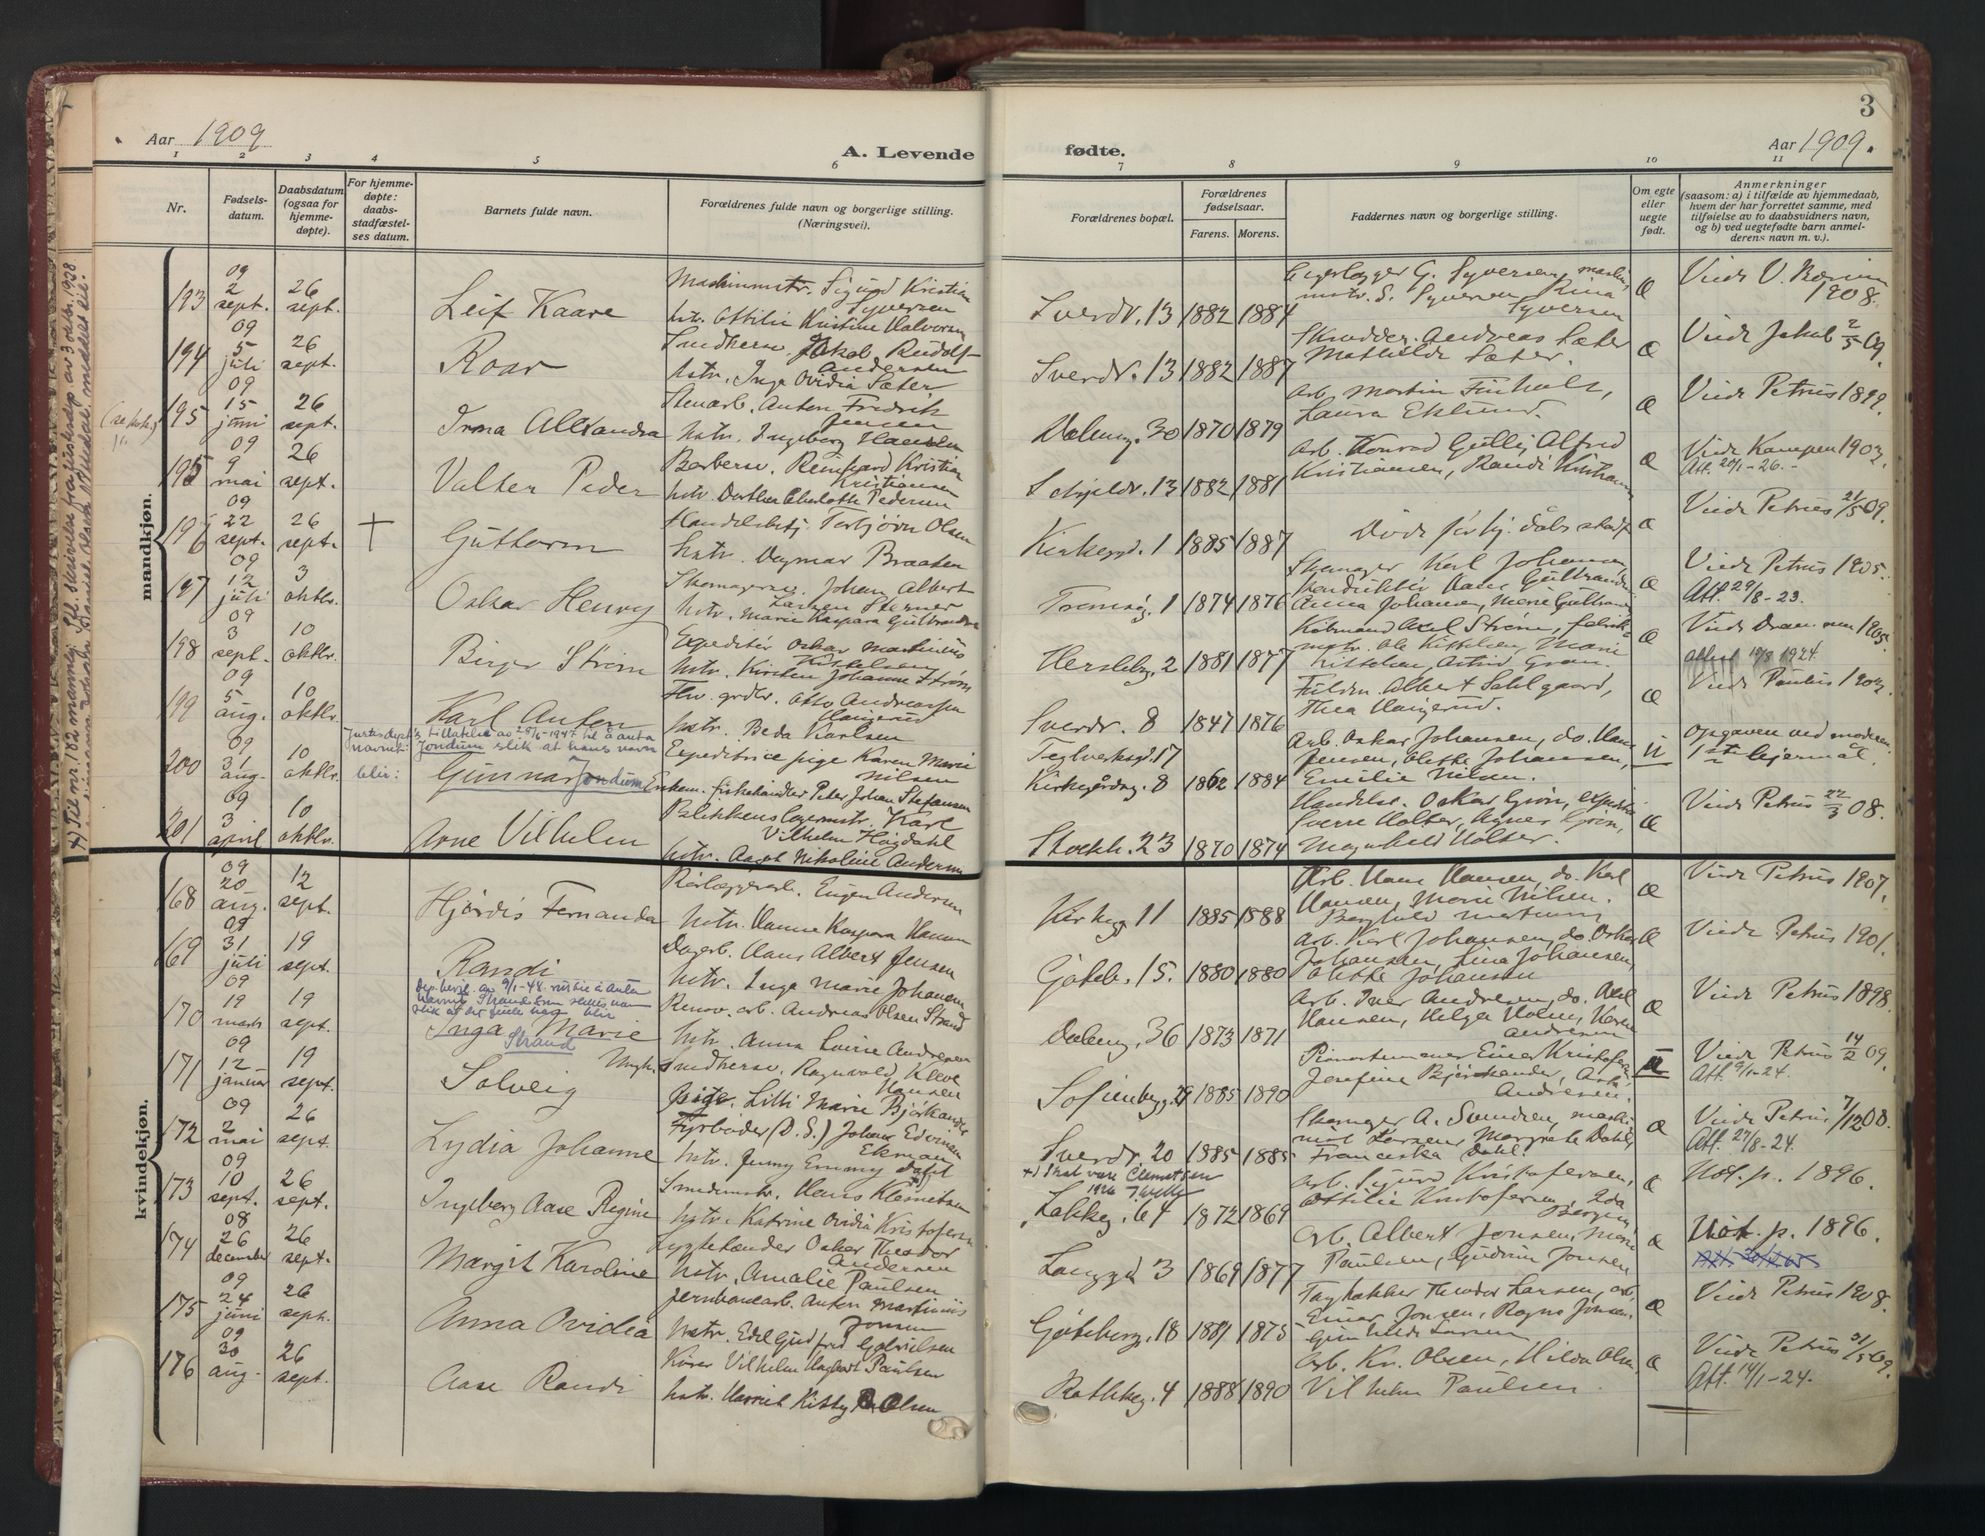 Aar 1909
A. Levende
fødte.
Aar 1909.
3
1 2 3 4 5 6 7 8 9 10 11
Nr.
Fødsels-
datum.
Daabsdatum
(ogsaa for
hjemme-
døpte).
For hjemme-
døpte:
daabs-
stadfæstel-
ses datum.
Barnets fulde navn.
Forældrenes fulde navn og borgerlige stilling.
(Næringsvei).
Forældrenes bopæl.
Forældrenes
fødselsaar.
Farens. Morens.
Faddernes navn og borgerlige stilling.
Om egte
eller
uegte
født.
Anmerkninger
(saasom: a) i tilfælde av hjemmedaab,
hvem der har forrettet samme, med
tilføielse av to daabsvidners navn,
og b) ved uegtefødte barn anmel-
derens navn m. v.).
mandkjøn.
193 09 2 sept. 26 sept. Leif Kaare
Maskinmstr. Sigurd Kristian
Syversen
hstr. Ottilie Kristine Halvorsen
Sverdr. 13 1882 1884
G. Syversen, maskin
mstr. S. Syversen, Rina
Syversen
Æ
1908.
194 09 5 juli 26 sept. Roar
Jakob Rudolf
Andersen
hstr. Inga Ovidia Sæter
Sverdr. 13 1882 1887
Skrædder Andreas Sæter
Mathilde Sæter.
Æ
Viede Jakob 2/5 09.
195 09 15 juni 26 sept. Irma Allexandra
Stenarb. Anton Fredrik
Jensen
hstr. Ingeborg Hansen
Daleng. 30 1870 1879
Arb. Martin Finholt,
Laura Eklund.
Æ
Viede Petrus 1899.
195 09 9 mai 26 sept. Valter Peder
Barbersv. Reinhard Kristian
Kristiansen
hstr. Dorthea Charlotte Pedersen
Schjeldr. 13 1882 1881
Arb. Konrad Gulli, Alfred
Kristiansen, Randi Kristiansen
Æ
Viede Kampen 1903.
Att. 20/1-26.-
196 09 22 sept. 26 sept. Guttorm
Handelsbetj. Torbjørn Olsen
hstr. Dagmar Braaten
Kirkegd. 1 1885 1887
Døde før hj. dåbs stadf
Æ
Viede Petrus 21/5 09.
197 09 12 juli 3 oktbr. Oskar Henry
Skomagersv. Johan Albert
Larsen
hstr. Marie Kaspara Gulbrandsen
Tromsøg. 1 1874 1876
Skomager Karl Johansen,
konduktør Hans Gulbrandsen
Anna Johansen, Marie Gulbrandsen
Æ
Viede Petrus 1905.
Att. 29/8-23.
198 09 3 sept. 10 oktbr. Birger Strøm
Expeditør Oskar Martinius
Kittelsen
hstr. Kirsten Johanne Strøm
Herslebg. 2 1881 1877
Købmand Axel Strøm, fabrik-
mstr. Ole Kittelsen, Marie
Kittelsen, Astrid Gran.
Æ
1905.
10/8 1924.
199 09 5 aug. 10 oktbr. Karl Anton
Otto Andreassen
Haugerud
hstr. Beda Karlsen
Sverdr. 8 1847 1876
Albert Dahlgaard,
Thea Haugerud.
Æ
Viede Paulus 1903.
navnet: Jondum slik at hans navn
blir:
200 09 31 aug. 10 oktbr. Gunnar Jondum
Expeditrice pige Karen Marie
Nilsen
Enkem. fiskehandler Peter Johan Stefansen
Teglverksgt. 17
Kirkegårdsg. 8 1862 1884
Arb. Oskar Johansen, do. Hans
Jensen, Olette Johansen,
Emilie Nilsen.
U
Opgaven ved moderen.
1ste leiermål.
201 09 3 april 10 oktbr. Arne Vilhelm
Blikkenslagermstr. Karl
Vilhelm Høgdahl
hstr. Aagot Nikoline Andersen
Stockh. 23 1870 1874
Handelsr. Oskar Grøn,
Sverre Holter, Agnes Grøn,
Magnhild Holter.
Æ
Viede Petrus 22/3 08.
kvindekjøn.
168 09 20 aug. 12 sept. Hjørdis Fernanda
Rørlæggerarb. Eugen Andersen
hstr. Hanna Kaspara Hansen
Kirkeg. 11 1885 1888
Arb. Hans Hansen, do. Karl
Hansen, Marie Nilsen.
Æ
Viede Petrus 1907.
169 09 31 juli 19 sept. Randi
Dagarb. Hans Albert Jensen
hstr. Inga Marie Johansen
Gøteb. 15. 1880 1880
Arb. Karl Johansen, do. Oskar
Johansen, Lina Johansen,
Olette Johansen
Æ
Viede Petrus 1901.
170 09 19 marts 19 sept. Inga Marie
Strand
Renov. arb. Andreas Olsen Strand
hstr. Anna Lovise Andresen
Daleng. 36 1873 1871
Arb. Iver Andresen, do. Axel
Hansen, Helga Holm, Karen
Andresen
Æ
Viede Petrus 1898.
171 09 12 januar 19 sept. Solveig
Ungk. Smedhersv. Ragnvald Kleve
Hansen
pige. Lilli Marie Bjørkander
Sofienbergg. 29 1885 1890
Einar Kristofersen,
Josefine Bjørkander,
Andresen.
U
Viede Petrus 14/2 09.
Att. 9/1-24.
172 09 2 mai 26 sept. Lydia Johanne
Fyrbøder (D. S.) Johan Edvin
Ekman
hstr. Jenny Emmy Dahl
Sverdr. 20 1885 1885
Skomager A. Svendsen,
Larsen, Margrete Dahl,
Franciska Dahl.
Æ
Viede Petrus 7/12 08.
Att. 27/8-24.
173 09 10 sept. 26 sept. Ingeborg Aase Regine
Smedmstr. Hans Klemetsen
hstr. Katrine Ovidia Kristofersen
+) Skal være Clemetsen
Lakkeg. 64 1872 1869
Arb. Sigurd Kristofersen,
Ottilie Kristofersen, Ida
Bergem
Æ
Not. p. 1896.
174 08 26 december 26 sept. Margit Karoline
Lygtetænder Oskar Theodor
Andersen
hstr. Amalie Paulsen
Langgd 3 1869 1877
Arb. Albert Jonsen, Marie
Paulsen, Gudrun Jonsen
Æ
Not. p. 1896.
175 09 24 juni 26 sept. Anna Ovidia
Jernbanearb. Anton Martinius
Jonsen
hstr. Edel Gudfred Gabrielsen
Gøteborg. 18 1881 1875
Taktækker Theodor Larsen, arb.
Einar Jonsen, Ragna Jonsen.
Gunhilde Larsen
Æ
Viede Petrus 1908.
176 09 30 aug. 26 sept. Aase Randi
Kører Vilhelm Hagbart Paulsen
hstr. Harriet Kitty Olsen
Rathkeg. 4 1888 1890
Arb. Kr. Olsen, Hilda Olsen
Vilhelm Paulsen.
Æ
Viede Petrus 31/5 09.
Att. 14/1-24.